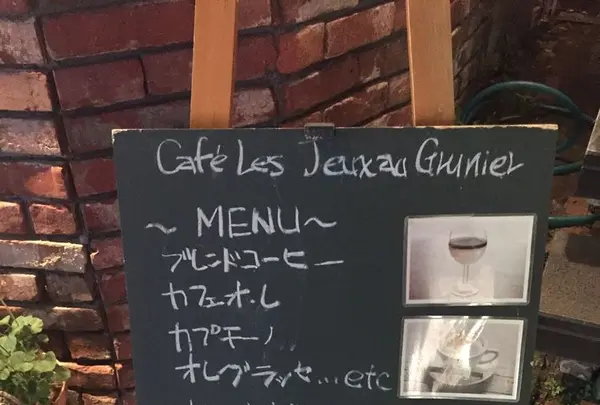 Café Les Jeux au Grunier
～ MENU～
ブレンドコーヒー
カフェオ・レ
カプチーノ
オレグラッセ...etc